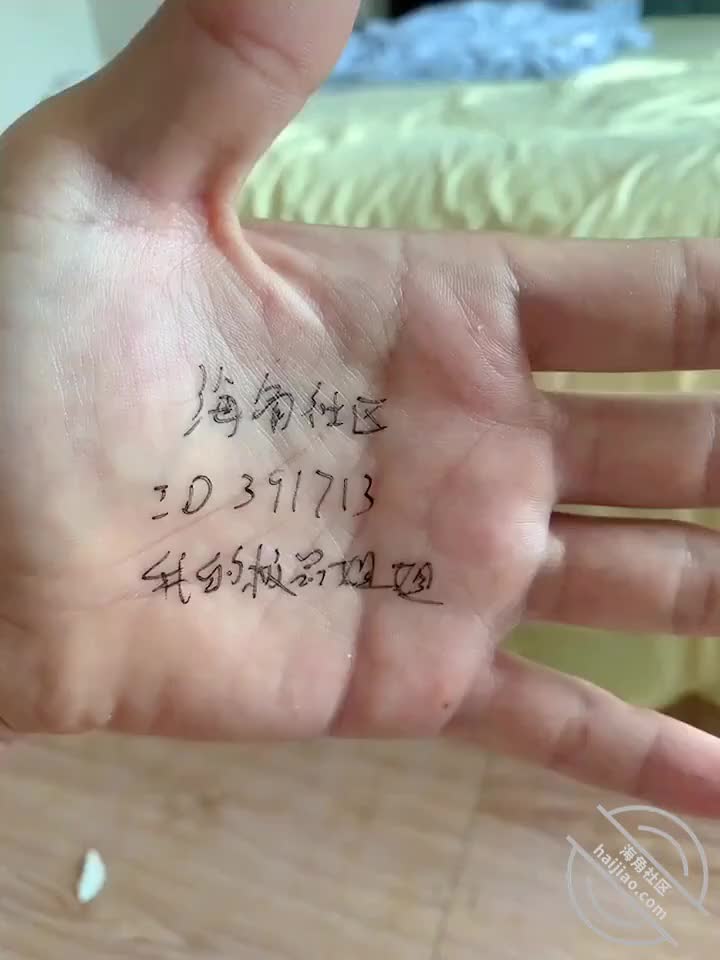 海角社区
ID 391713
我的极品姐姐
海角社区
haijiao.com